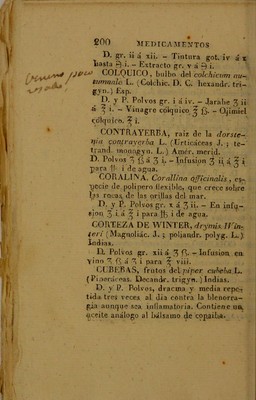 200 MEDICAMENTOS
D. gr. ii á xii. – Tintura got. iv á x
hasta ℈ i. – Extracto gr. v á ℈ i.
COLQUICO, bulbo del colchicum au-
tumnale L. (Colchic. D. C. hexandr. tri-
gyn.) Esp.
D. y P. Polvos gr. i á iv. – Jarabe ʒ ii
á ℥ i. – Vinagre colquico ʒ ß. – Ojimiel
colquico. ℥ i.
CONTRAYERBA, raiz de la dorste-
nia contrayerba L. (Urticáceas J. ; te-
trand. monogyn. L.) Amér. merid.
D. Polvos ʒ ß á ʒ i. – Infusion ʒ ii á ℥ i
para ℔ i de agua.
CORALINA. Corallina officinalis, es-
pecie de polipero flexible, que crece sobre
las rocas de las orillas del mar.
D. y P. Polvos gr. x á ʒ ii. – En infu-
sion ʒ i á ℥ i para ℔ i de agua.
CORTEZA DE WINTER, drymis Win-
teri (Magnoliác. J. ; poliandr. polyg. L.)
Indias.
D. Polvos gr. xii á ʒ ß. – Infusion en
vino ʒ ß á ʒ i para ℥ viii.
CUBEBAS, frutos del piper cubeba L.
(Piperáceas. Decandr. trigyn.) Indias.
D. y P. Polvos, dracma y media repe-
tida tres veces al dia contra la blenorra-
gia aunque sea inflamatoria. Contiene un
aceite análogo al bálsamo de copaiba.